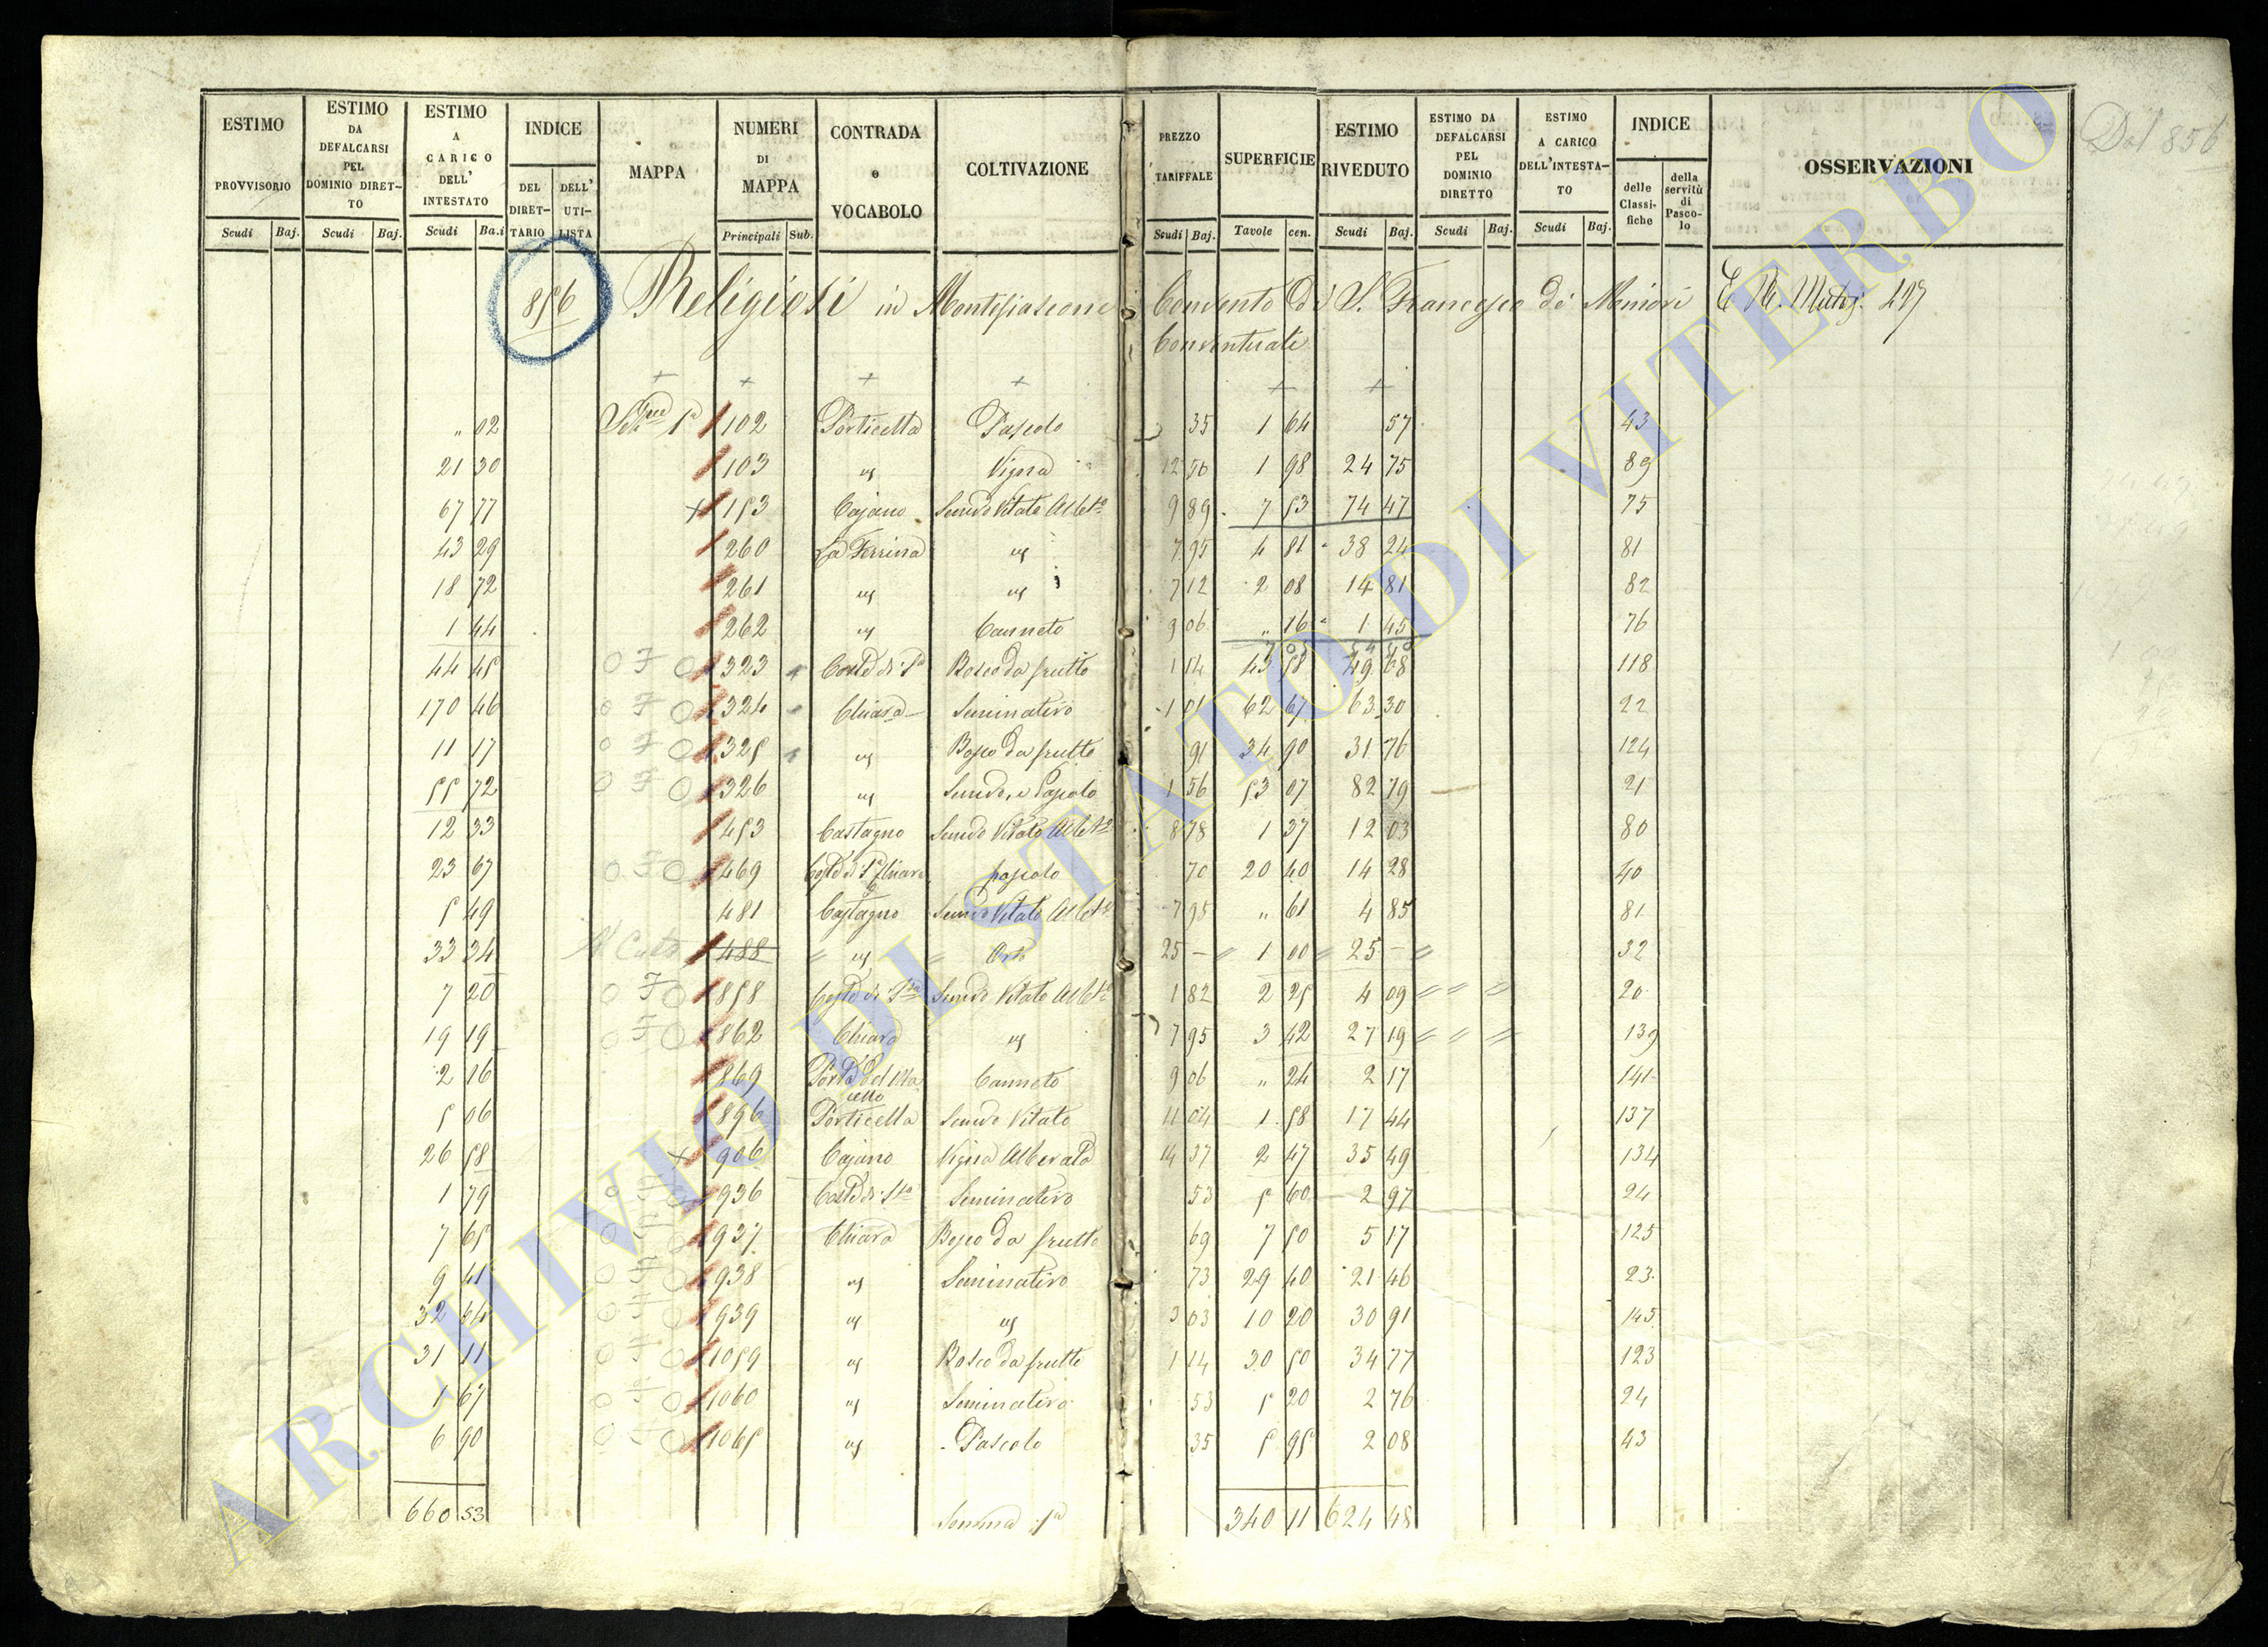 Dal 856
ESTIMO PROVVISORIO Scudi Baj.
ESTIMO DA DEFALCARSI PEL DOMINIO DIRET- TO Scudi Baj.
ESTIMO A CARICO DELL' INTESTATO Scudi Ba.i
INDICE DEL DIRET- TARIO DELL' UTI- LISTA
MAPPA
NUMERI DI MAPPA Principali Sub.
CONTRADA e VOCABOLO
COLTIVAZIONE
PREZZO TARIFFALE Scudi Baj.
SUPERFICIE Tavole cen.
ESTIMO RIVEDUTO Scudi Baj.
ESTIMO DA DEFALCARSI PEL DOMINIO DIRETTO Scudi Baj.
ESTIMO A CARICO DELL'INTESTA- TO Scudi Baj.
INDICE delle Classi- fiche della servitù di Pasco- lo
OSSERVAZIONI
856 Religiosi in Montefiascone Convento di S. Francesco de' Minori
Conventuali
+ + + + + +
„ 02 102 Porticella Pascolo 35 1 64 57 43
21 30 103 " Vigna 12 50 1 98 24 75 89
67 77 + 153 Cajano Semvo Vitato Albto 9 89 7 53 74 47 75
43 29 260 La Ferrina " 7 95 4 81 38 24 81
18 72 261 " " 7 12 2 08 14 81 82
1 44 262 " Canneto 9 06 „ 16 1 45 76
44 45 O F O 323 Coste di Sa Bosco da frutto 1 14 43 58 49 68 118
170 46 O F O 324 Chiara Seminativo 1 01 62 67 63 30 22
11 17 O F O 325 " Bosco da frutto 91 34 90 31 76 124
55 72 O F O 326 " Semvo, e Pascolo 1 56 53 07 82 79 21
12 33 453 Castagno Semvo Vitato Albto 8 78 1 37 12 03 80
23 67 O F O 469 Coste di Sa Chiara pascolo 70 20 40 14 28 40
5 49 481 Castagno Semvo Vitato Albto 7 95 „ 61 4 85 81
33 34 488 " Orto 25 – 1 00 25 – 32
7 20 O F O 858 Coste di Sta Semvo Vitato Albto 1 82 2 25 4 09 20
19 19 O F O 862 Chiara " 7 95 3 42 27 19 139
2 16 869 Porta del Ma 9 06 Canneto „ 24 2 17 141
cello
5 06 896 Porticella Semvo Vitato 11 04 1 58 17 44 137
26 58 + 906 Cajano Vigna Alberata 14 37 2 47 35 49 134
1 79 936 Coste di Sta Seminativo 53 5 60 2 97 24
7 65 937 Chiara Bosco da frutto 69 7 50 5 17 125
9 41 938 " Seminativo 73 29 40 21 46 23
32 64 939 " " 3 03 10 20 30 91 145
31 11 1059 " Bosco da frutto 1 14 30 50 34 77 123
1 67 1060 " Seminativo 53 5 20 2 76 24
6 90 1065 " Pascolo 35 5 95 2 08 43
660 53 Somma 340 11 624 48
ARCHIVIO DI STATO DI VITERBO